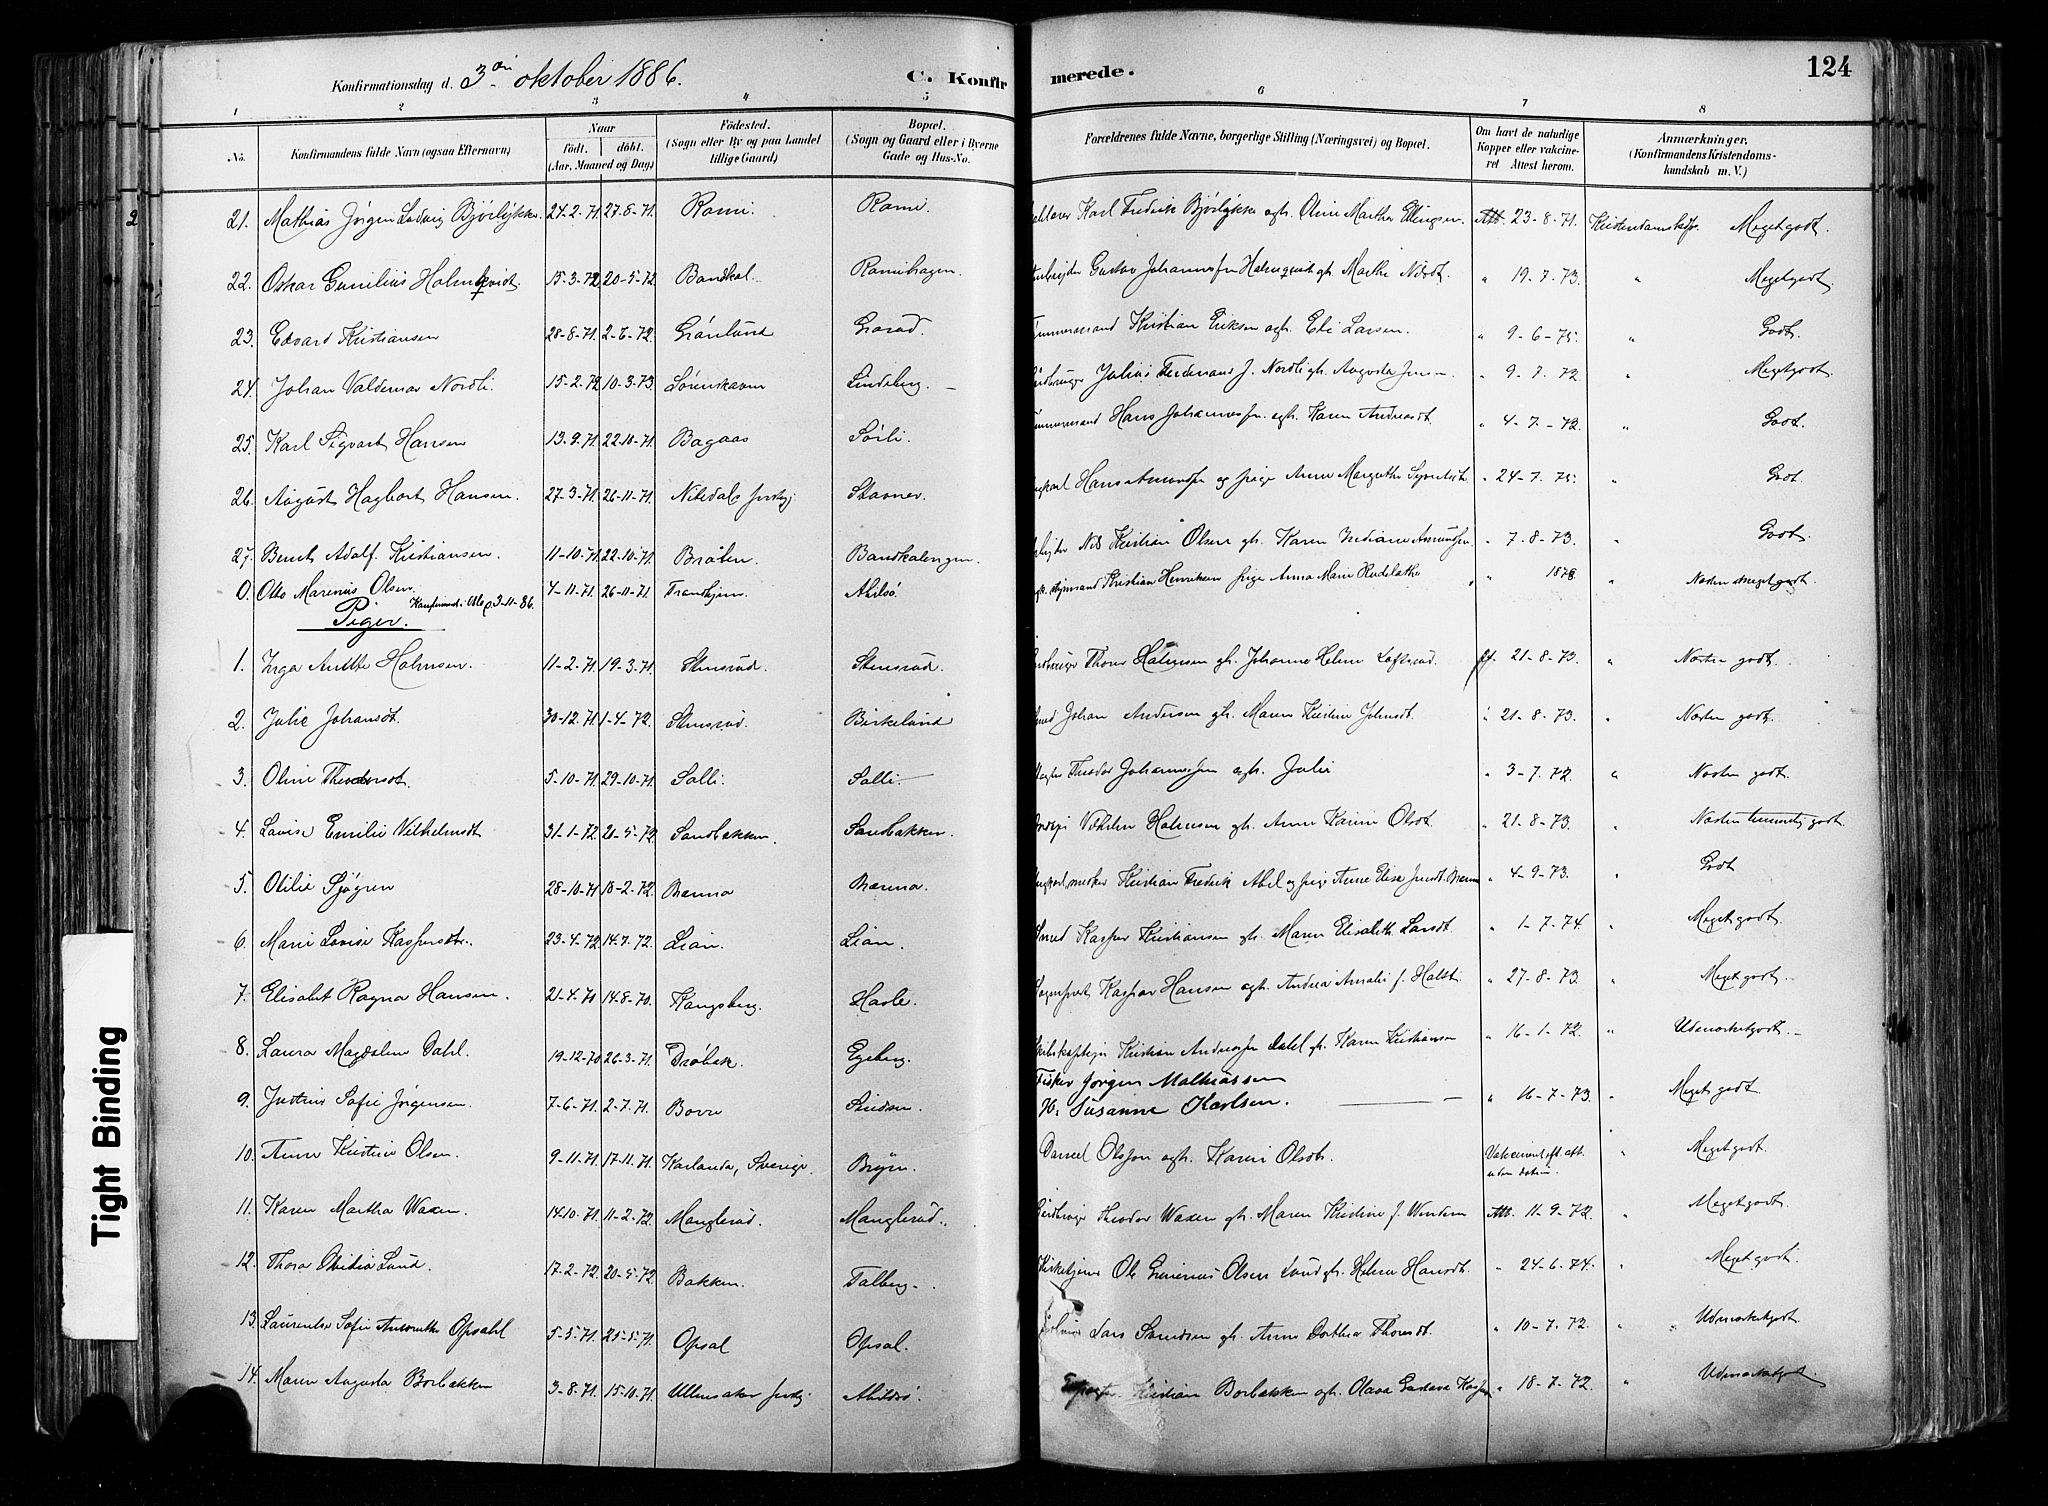 124
Konfirmationsdag d. 3die oktober 1886.
C. Konfirmerede.
1 2 3 4 5 6 7 8
No. Konfirmandens fulde Navn (ogsaa Efternavn) Naar födt. döbt. (Aar, Maaned og Dag) Födested. (Sogn eller By og paa Landet tillige Gaard) Bopæl. (Sogn og Gaard eller i Byerne Gade og Hus-No. Forældrenes fulde Navne, borgerlige Stilling (Næringsvei) og Bopæl. Om havt de naturlige Kopper eller vakcineret Attest herom. Anmærkninger, (Konfirmandens Kristendomskundskab m. V.)
2
21. Mathias Jørgen Ludvig Bjørlykke 24-2-71 27-8-71 Karl Fredrik Bjørlykke og h. Oline Martha Ellingsen Att. 23-8-71. Kristendomskdsk. Megetgodt.
22. Oskar Gunilius Holmqvist. 15-3-72 20-5-72 Gustav Johannessen Holmqvist gh. Marthe " 19-7-73. " Megetgodt.
23. Edvard Kristiansen 28-8-71 2-6-72 Grønlund Grorud. Kristian Eriksen ogh. Eli Larsen. " 9-6-75. " Godt.
24. Johan Valdemar Nordli 15-2-72 10-3-73 Lindeberg. Julius Ferdinand J. Nordli gh. Augusta " 9-7-72 " Megetgodt.
25. Karl Sigvart Hansen 13-9-71 22-10-71 Bagaas Sørli. Hans Johannessen. ogh. Karen Andreasdt. " 4-7-72. " Godt.
26. August Hagbart Hansen. 27-3-71 26-11-71 Nitedals Hans Amundsen og pige Anne Margrethe " 24-7-75. " Godt.
27. Bernt Adolf Kristiansen. 11-10-71 22-10-71 Bråten. Bandkalengen. Nils Kristian Olsen gh. Karen Indiane Amundsen " 7-8-73. " Godt.
0. Otto Marenius Olsen. Konfirmeret i Oslo 3-11-86. 4-11-71 26-11-71. Trondhjem. Abilsø. Kristian Henriksen pige Anna Marie " 1878 " Næsten meget godt.
Piger.
1. Inga Anette Holmsen. 11-2-71 19-3-71. Stensrud. Stensrud. Thorer Holmsen gh. Johanne Helene Loftsrud. 21-8-73. " Næsten godt.
2. Julie Johansdt. 30-12-71 1-4-72. Stensrud Birkelund Johan Andersen gh. Maren Kristine Johnsdt. " 21-8-73. " Næsten godt.
3. Oline Theodorsdt. 5-10-71 29-10-71 Solli. Solli. Theodor Johannessen ogh. Julie " 3-7-72. " Næsten godt.
4. Lovise Emilie Vilhelmsdt 31-1-72 21-5-72. Sandbakken. Sandbakken. Holmsen gh. Anne Karine Olsdt. " 21-8-73. " Næsten temmelig godt.
5. Otilie Sjøgren 28-10-71 18-2-72. Bænna Bænna. Kristian Fredrik Abel og pige Anne Elise " 4-9-73. " Godt
6. Marie Lovise Kaspersdt. 23-4-72 14-7-72. Lian. Lian. Smed Kasper Kristiansen gh. Maren Elisabeth Larsdt. " 1-7-74. " Megetgodt.
7. Elisabet Ragna Hansen. 21-4-70 14-8-70. Kongsberg. Hasle. Kaspar Hansen ogh. Andrea Amalie f. Holst. " 27-8-73 " Megetgodt.
8. Laura Magdalene Dahl. 19-12-70 26-3-71. Drøbak. Egeberg. Kristian Andreassen Dahl gh. Karen Kristiansen " 16-1-72. " Udmærketgodt.
9. Justine Sofie Jørgensen. 7-6-71. 2-7-71. Borre Fisker Jørgen Mathiassen
H. Susanne Karlsen. " 16-7-73. " Megetgodt.
10. Anne Kristine Olsen. 9-11-71. 17-11-71. Karlanda, Sverige. Bryn. Daniel Olsson ogh. Karen Olsdt. Vakcineret eft. att. uden datum. " Megetgodt.
11. Karen Martha Waxen. 14-10-71 11-2-72. Manglerud. Manglerud. Theodor Waxen gh. Maren Kristine f. Att. 11-9-72. " Megetgodt.
12. Thora Lund. 17-2-72. 20-5-72 Bakken. Talberg. Kirketjener Ole Olsen Lund gh. Helene Hansdt. " 24-6-74. " Megetgodt.
13. Laurentse Sofie Antonette Opsahl 5-5-71. 25-5-71. Opsal Opsal. Lars gh. Anne Dorthea Thorsdt. " 10-7-72. " Udmærketgodt.
14. Maren Augusta Borbakken 3-8-71. 15-10-71 Ullensaker Abildsø. Kristian Borbakken ogh. Olava Gustava " 18-7-72. " Udmærketgodt.
Tight Binding